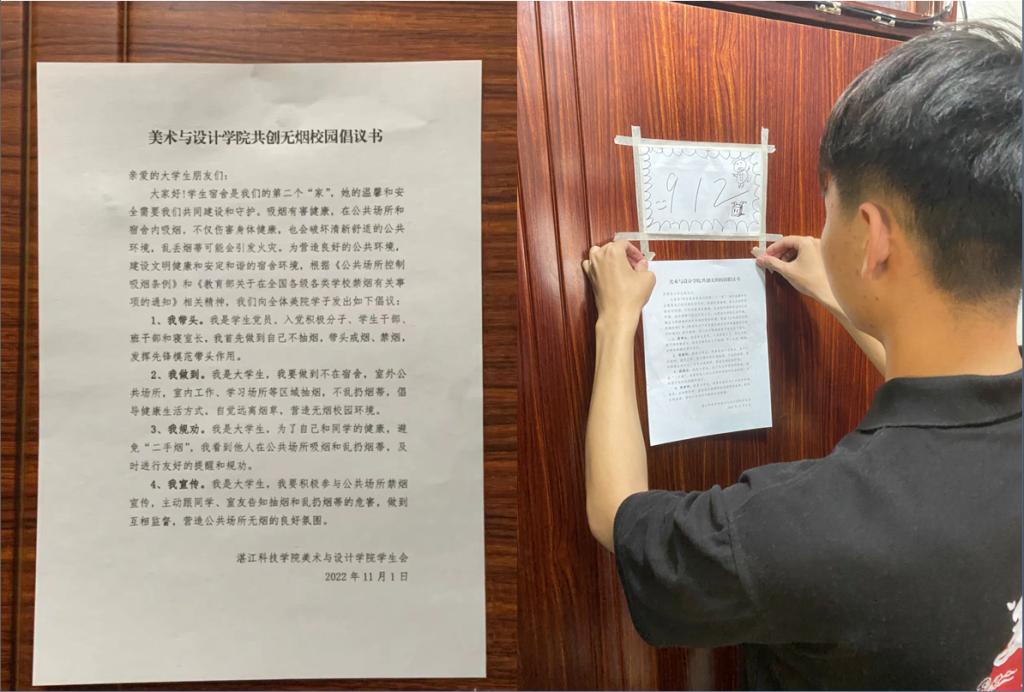 美术与设计学院共创无烟校园倡议书
亲爱的大学生朋友们：
大家好!学生宿舍是我们的第二个“家”，她的温馨和安
全需要我们共同建设和守护。吸烟有害健康，在公共场所和
宿舍内吸烟，不仅伤害身体健康，也会破坏清新舒适的公共
环境，乱丢烟蒂可能会引发火灾。为营造良好的公共环境，
建设文明健康和安定和谐的宿舍环境，根据《公共场所控制
吸烟条例》和《教育部关于在全国各级各类学校禁烟有关事
项的通知》相关精神，我们向全体美院学子发出如下倡议：
1、我带头。我是学生党员、入党积极分子、学生干部、
班干部和寝室长，我首先做到自己不抽烟，带头戒烟、禁烟，
发挥先锋模范带头作用。
2、我做到。我是大学生，我要做到不在宿舍，室外公
共场所，室内工作、学习场所等区域抽烟，不乱扔烟蒂，倡
导健康生活方式，自觉远离烟草，营造无烟校园环境。
3、我规劝。我是大学生，为了自己和同学的健康，避
免“二手烟”，我看到他人在公共场所吸烟和乱扔烟蒂，及
时进行友好的提醒和规劝。
4、我宣传。我是大学生，我要积极参与公共场所禁烟
宣传，主动跟同学、室友告知抽烟和乱扔烟蒂的危害，做到
互相监督，营造公共场所无烟的良好氛围。
湛江科技学院美术与设计学院学生会
2022 年 11 月 1 日
912
美术与设计学院共创无烟校园倡议书